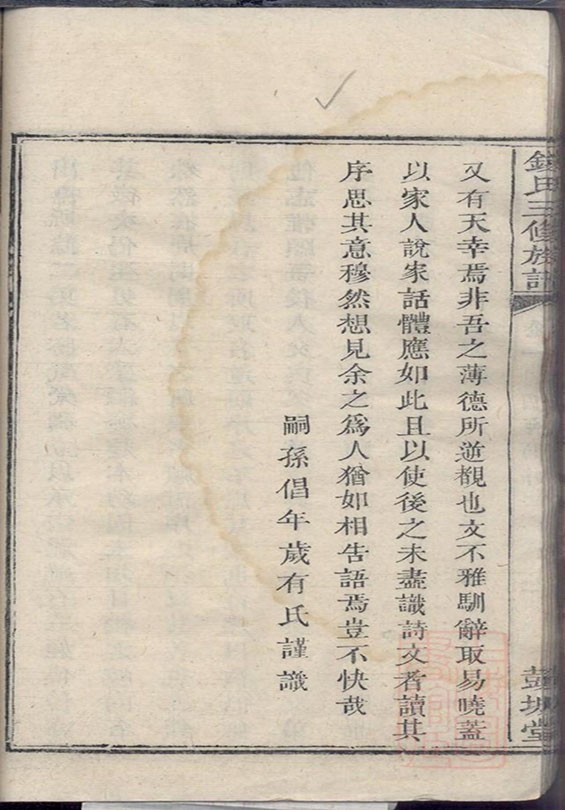 錢氏三修族譜
彭城堂
又有天幸焉非吾之薄德所逆覩也文不雅馴辭取易曉蓋
以家人說家話體應如此且以使後之未盡識詩文者讀其
序思其意穆然想見余之爲人猶如相告語焉豈不快哉
嗣孫倡年歲有氏謹識